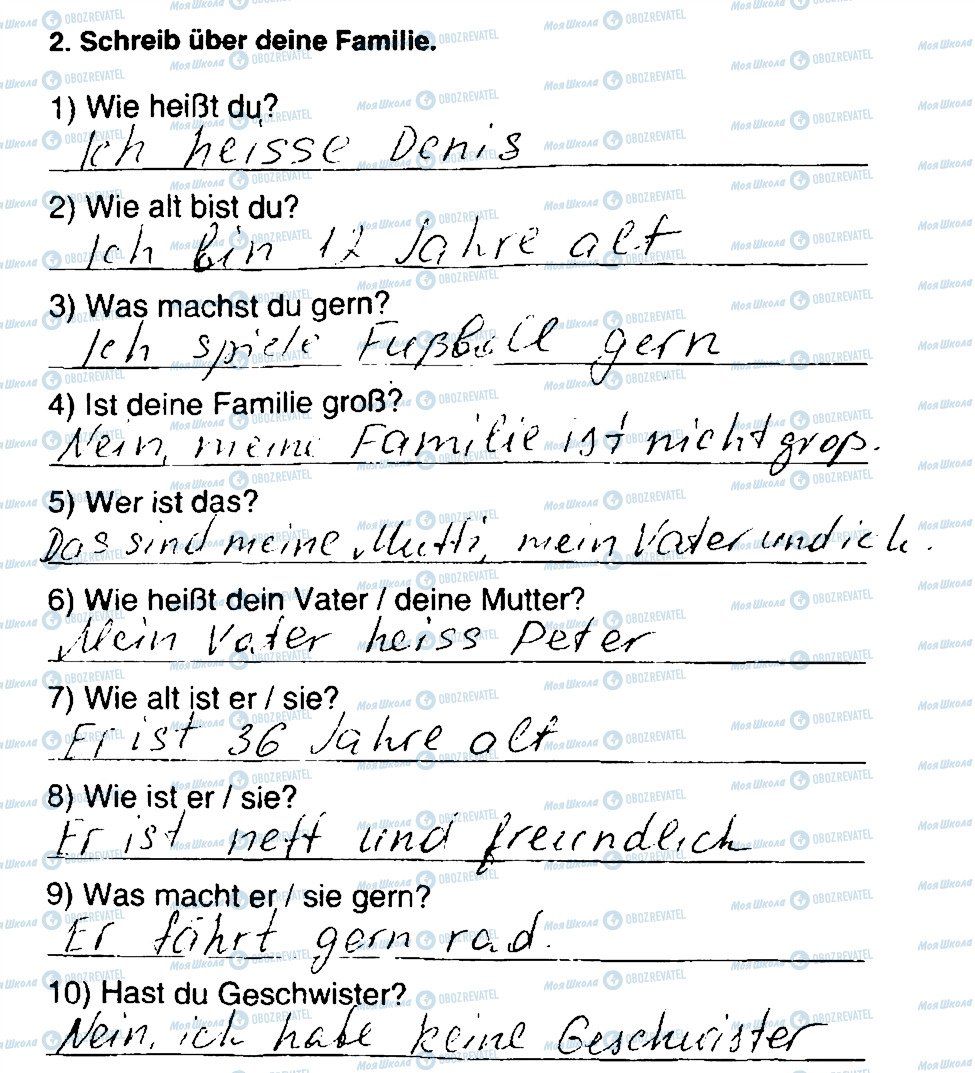 2. Schreib über deine Familie.
1) Wie heißt du?
Ich heisse Denis
2) Wie alt bist du?
Ich bin 12 Jahre alt
3) Was machst du gern?
Ich spiele Fußball gern
4) Ist deine Familie groß?
Nein, meine Familie ist nicht groß.
5) Wer ist das?
Das sind meine Mutti, mein Vater und ich.
6) Wie heißt dein Vater / deine Mutter?
Mein Vater heiss Peter
7) Wie alt ist er / sie?
Er ist 36 Jahre alt
8) Wie ist er / sie?
Er ist nett und freundlich
9) Was macht er / sie gern?
Er fährt gern rad.
10) Hast du Geschwister?
Nein, ich habe keine Geschwister